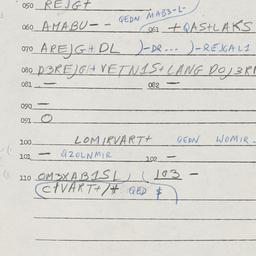 050 REJG+
QEDN MAB3-L-
060 AMABU-- 061 +QAS+LAKS
070 AREJG+DL )-DR... )-REXAL1
080 D3REJG+VETN1S+LANG DOJ3R
081 — 082 —
090 —
091 O
100 LOMIRVART+ QEDN WOMIR-
101 — GZOLNMIR 102 —
110 OM3XAB1SL) ( 103 -
C+VART+/# QED $